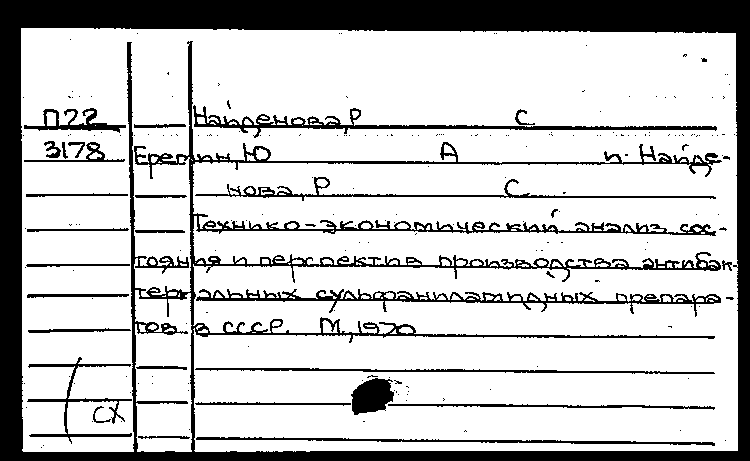 П22 Найденова, Р С
3178 Еремин, Ю А и Найде-
нова, Р С.
Технико-экономический анализ сос-
тояния и перспектив производства антибак-
териальных сульфаниламидных препара-
тов в СССР. М., 1970
СХ